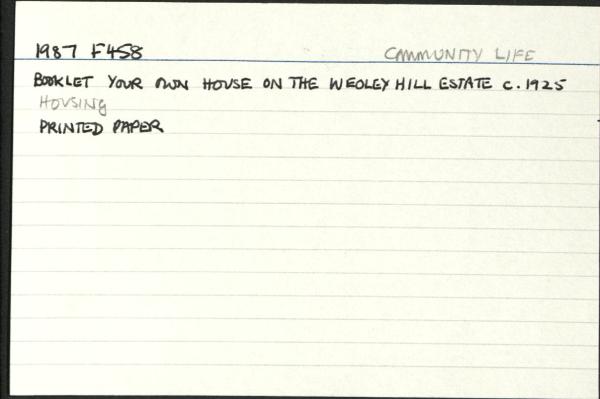 1987 F458 COMMUNITY LIFE
BOOKLET YOUR OWN HOUSE ON THE WEOLEY HILL ESTATE c. 1925
HOUSING
PRINTED PAPER